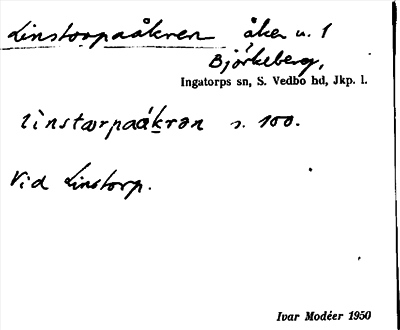 Linstorpaåkren åker u. 1
Björkeberg,
Ingatorps sn, S. Vedbo hd, Jkp. l.
lìnstærpaákrən s. 100.
Vid Linstorp.
Ivar Modéer 1950